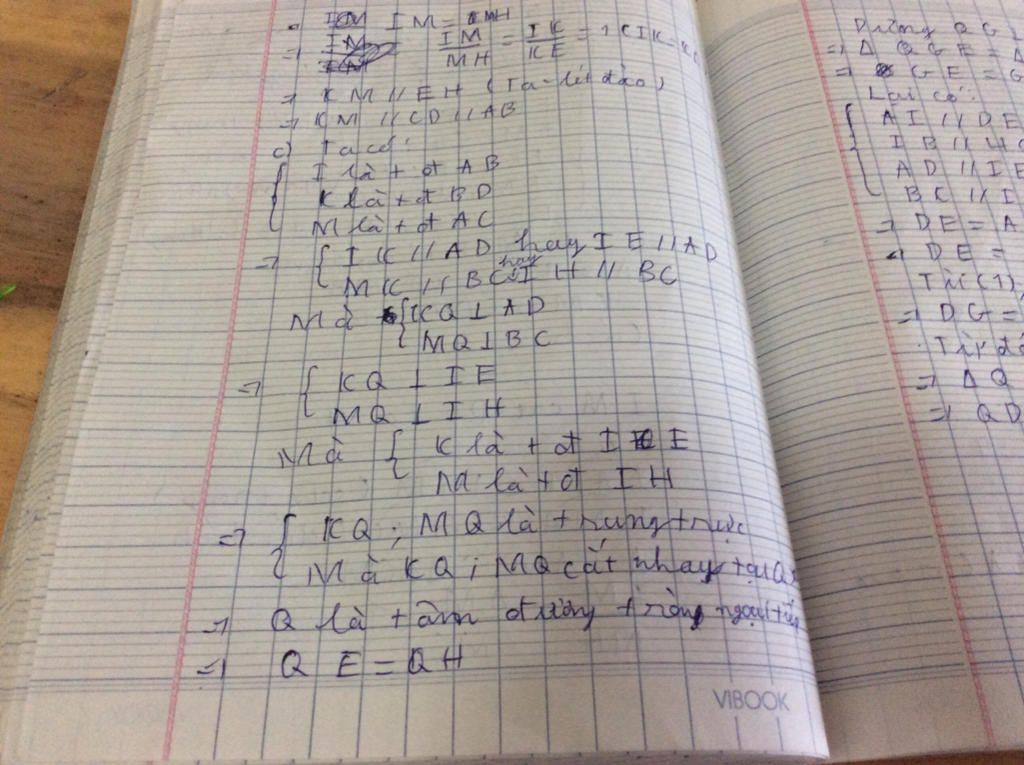 IM = MH
=> IM/MH = IK/KE = 1 (IK =
=> KM // EH (Ta-lét đảo)
=> KM // CD // AB
c) Ta có:
{ I là tđ AB
K là tđ BD
M là tđ AC
=> { IK // AD hay IE // AD
MK // BC hay IH // BC
Mà { KQ ⊥ AD
MQ ⊥ BC
=> { KQ ⊥ IE
MQ ⊥ IH
Mà { K là tđ IE
M là tđ IH
=> { KQ ; MQ là trung trực
Mà KQ ; MQ cắt nhau tại Q
=> Q là tâm đường tròn ngoại tiếp
=> QE = QH
VIBOOK
Dựng QG
=> Δ QGE = Δ
=> GE = G
Lại có:
{ AI // DE
IB // HC
AD // IE
BC // I
=> DE = A
DE =
Từ (1),
=> DG =
Từ đó
=> Δ Q
=> QD